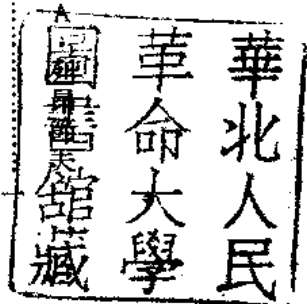 華北人民
革命大學
圖書館藏